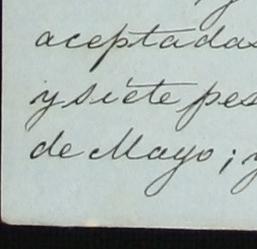 aceptadas
y siete pes
de Mayo; y